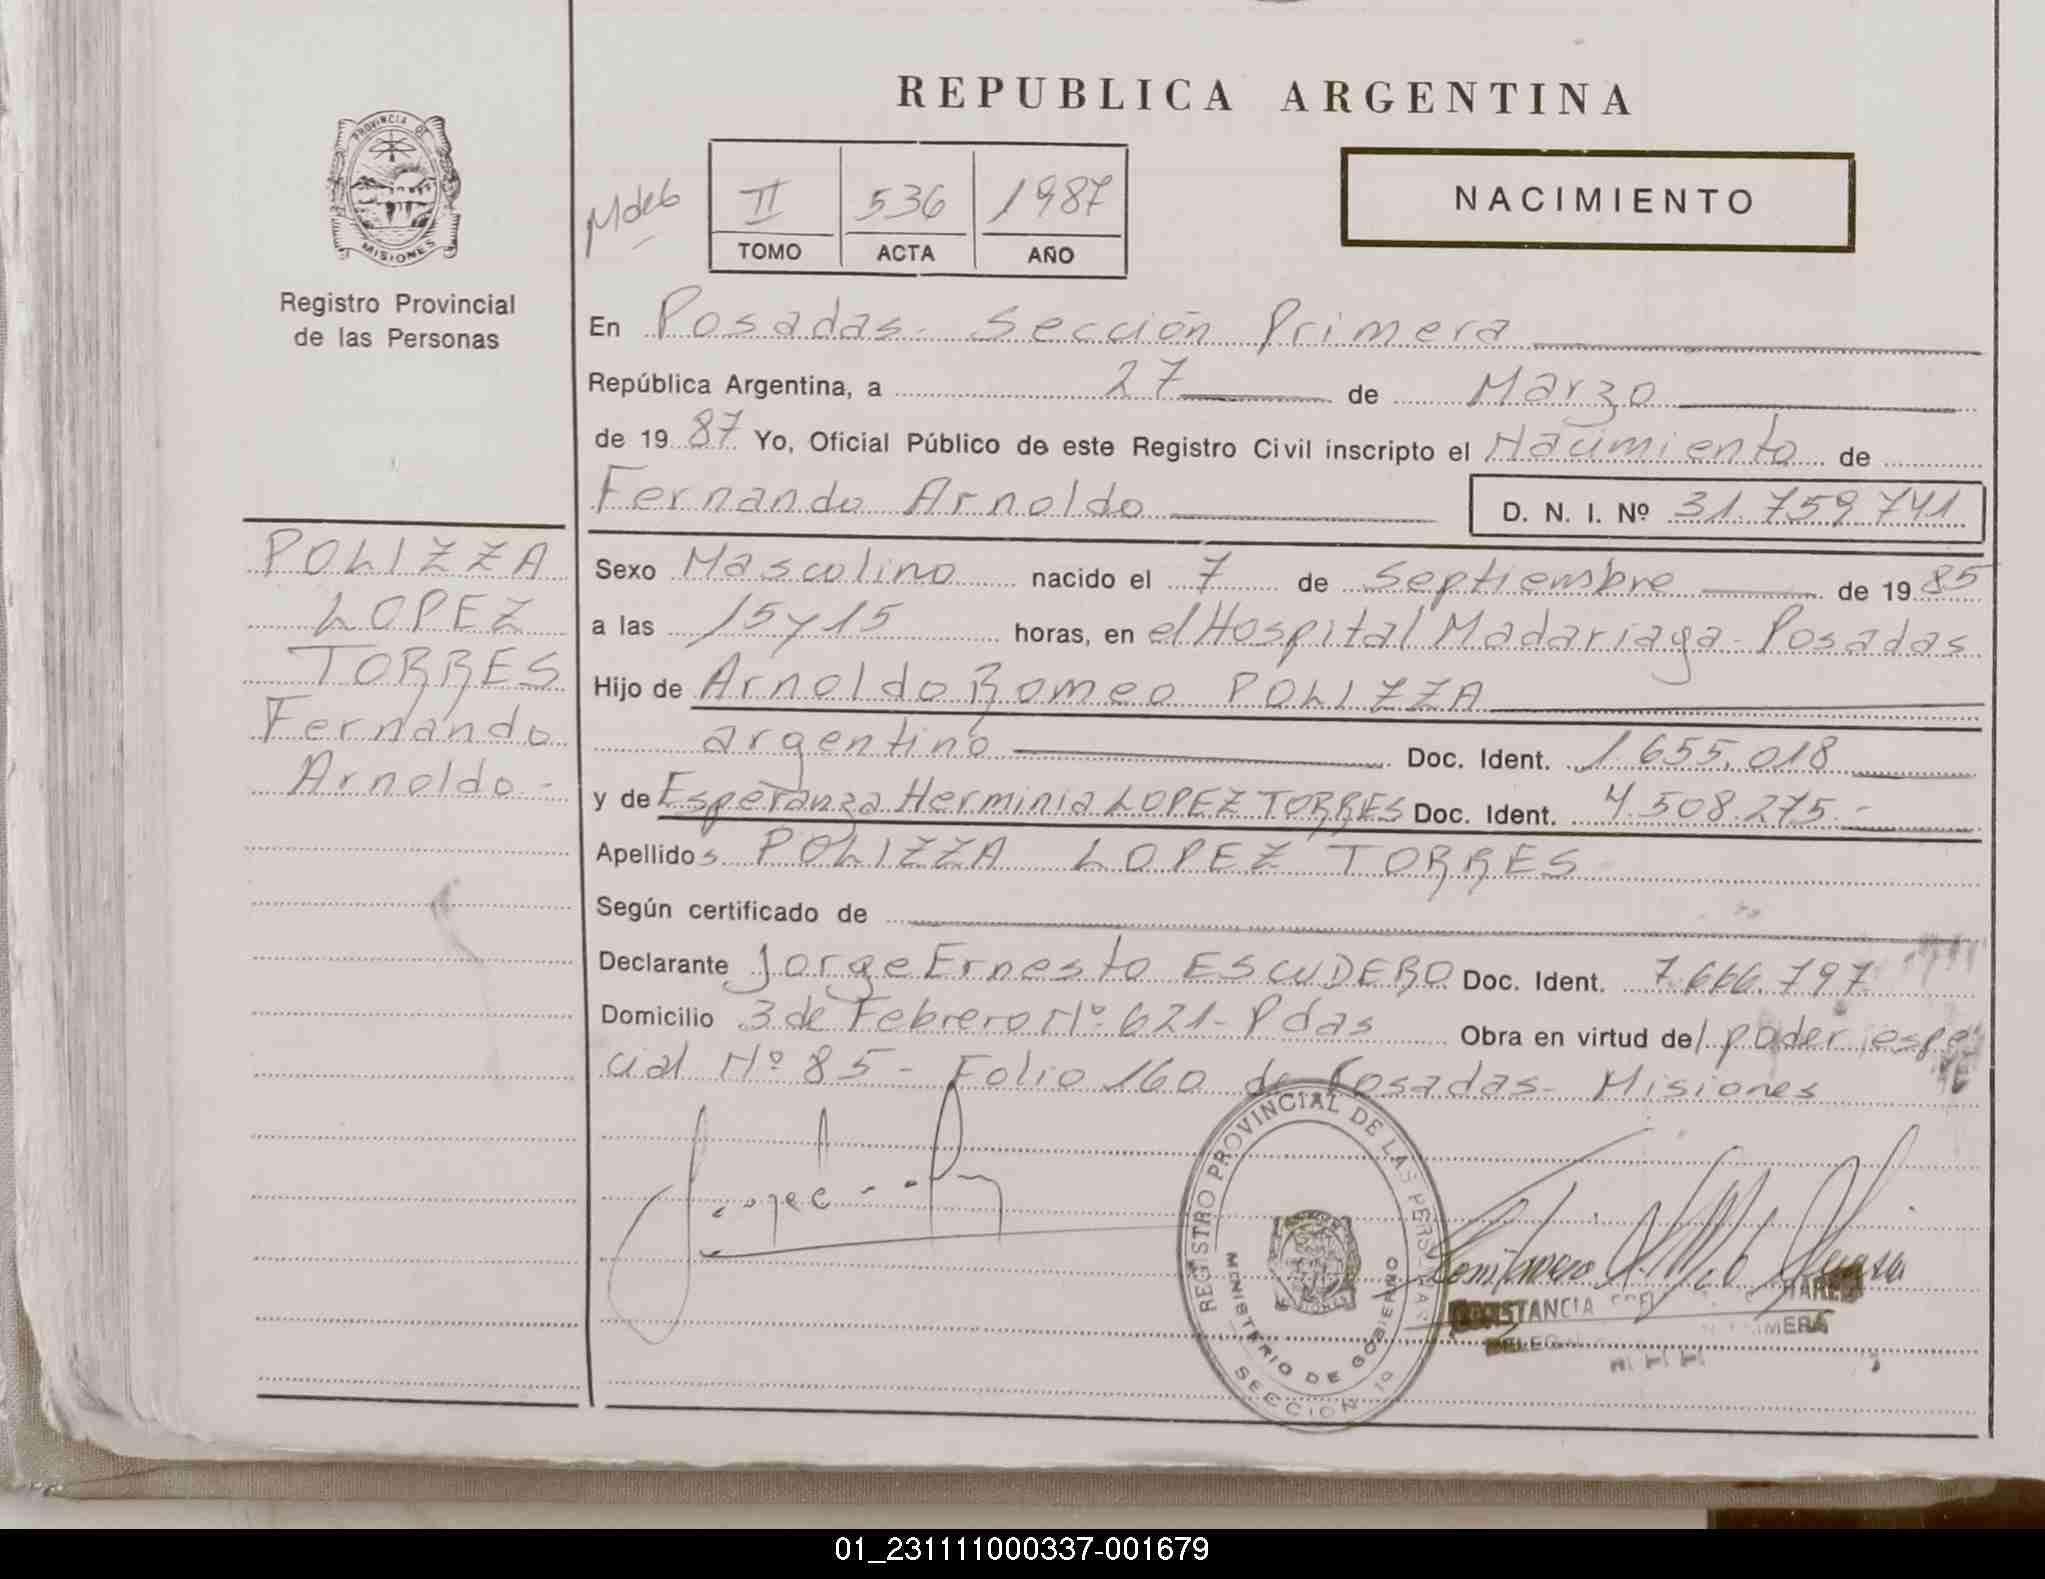 REPUBLICA ARGENTINA
PROVINCIA DE
MISIONES
Registro Provincial
de las Personas
Mdeb
II 536 1987
TOMO ACTA AÑO
NACIMIENTO
En Posadas - Sección Primera
República Argentina, a 27 de Marzo
de 1987 Yo, Oficial Público de este Registro Civil inscripto el Nacimiento de
Fernando Arnoldo
D. N. I. Nº 31.759.741
POLIZZA
LOPEZ
TORRES
Fernando
Arnoldo.-
Sexo Masculino nacido el 7 de Septiembre de 1985
a las 15 y 15 horas, en el Hospital Madariaga - Posadas
Hijo de Arnoldo Romeo POLIZZA
argentino Doc. Ident. 1.655.018
y de Esperanza Herminia LOPEZ TORRES Doc. Ident. 4.508.275.-
Apellidos POLIZZA LOPEZ TORRES
Según certificado de
Declarante Jorge Ernesto ESCUDERO Doc. Ident. 7.666.797
Domicilio 3 de Febrero Nº 621 - Pdas Obra en virtud del poder espe
cial Nº 85 - Folio 160 de Posadas - Misiones
REGISTRO PROVINCIAL DE LAS PERSONAS
MINISTERIO DE GOBIERNO
SECCION 1º
CONSTANCIA
01_231111000337-001679